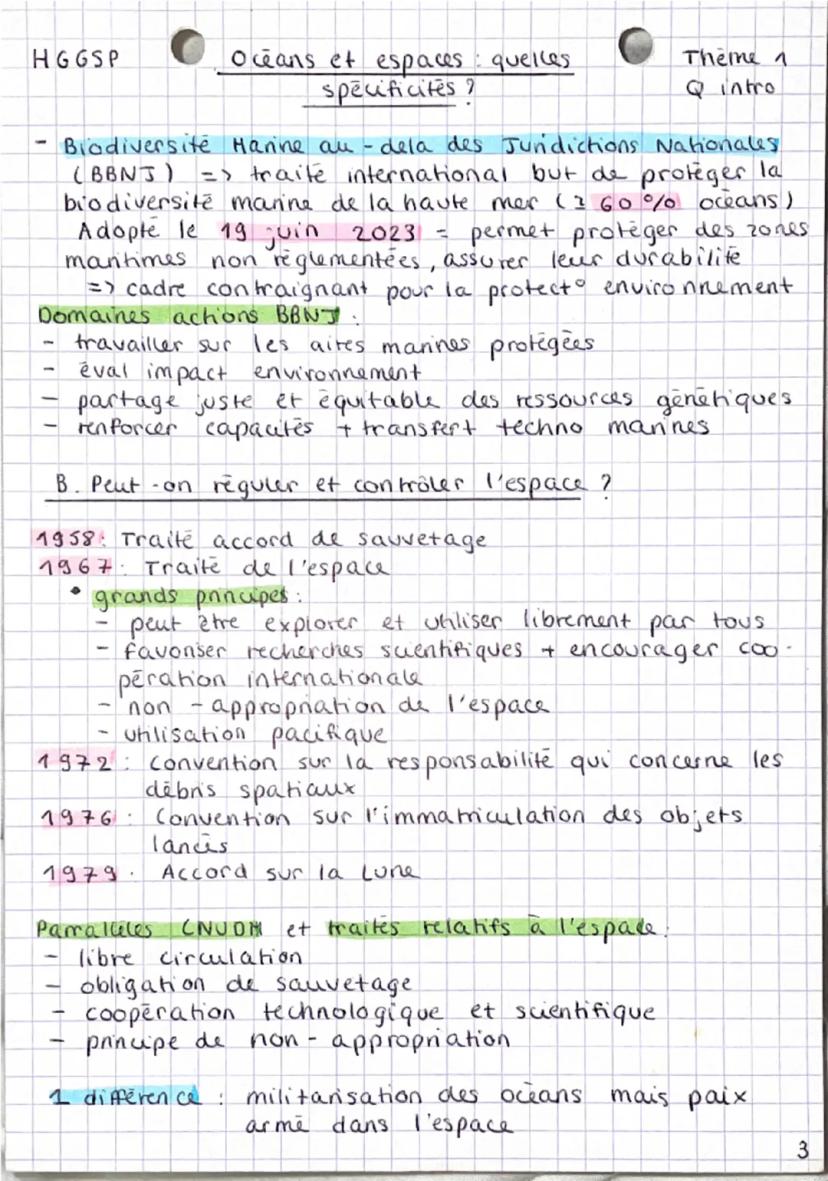 HGGSP
Océans et espaces : quelles
spécificités ?
Thème 1
Q intro
- Biodiversité Marine au-dela des Juridictions Nationales
(BBNJ) => traité international but de protéger la
biodiversité marine de la haute mer (≥ 60% océans)
Adopté le 19 juin 2023 = permet protéger des zones
maritimes non réglementées, assurer leur durabilité
=> cadre contraignant pour la protect° environnement
Domaines actions BBNJ :
- travailler sur les aires marines protégées
- éval impact environnement
- partage juste et équitable des ressources génétiques
- renforcer capacités + transfert techno marines
B. Peut-on réguler et contrôler l'espace ?
1958: Traité accord de sauvetage
1967: Traité de l'espace
• grands principes :
- peut être explorer et utiliser librement par tous
- favoriser recherches scientifiques + encourager coo-
pération internationale
- non-appropriation de l'espace
- utilisation pacifique
1972 : Convention sur la responsabilité qui concerne les
débris spatiaux
1976 : Convention sur l'immatriculation des objets
lancés
1979. Accord sur la Lune
Parrallèles CNUDM et traités relatifs à l'espace :
- libre circulation
- obligation de sauvetage
- coopération technologique et scientifique
- principe de non-appropriation
1 différence : militarisation des océans mais paix
armé dans l'espace
3